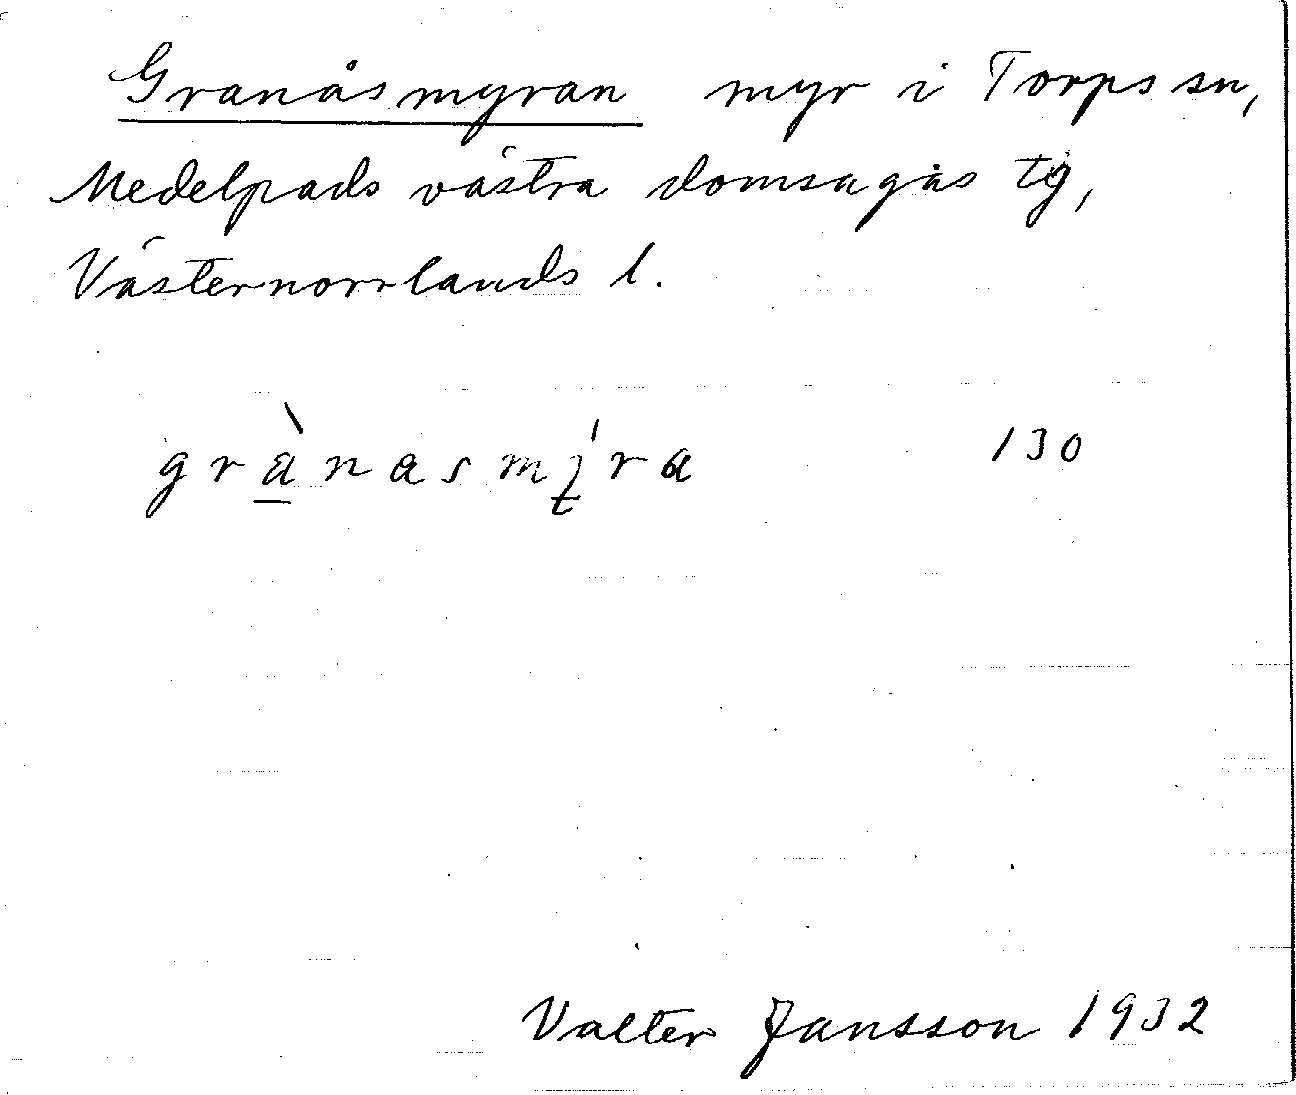 Granåsmyran myr i Torps sn,
Medelpads västra domsagas tg,
Västernorrlands l.
grànasmýra 130
Valter Jansson 1932